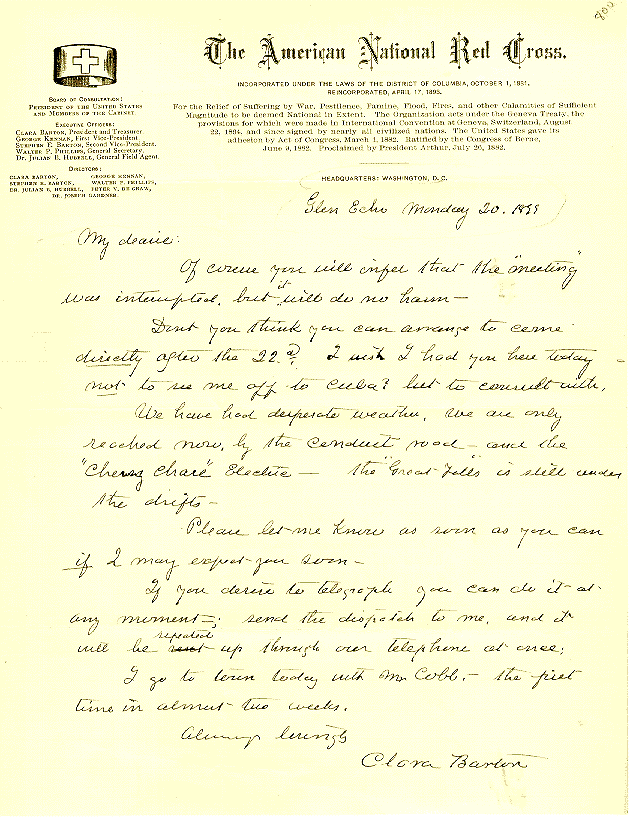 800
The American National Red Cross.
INCORPORATED UNDER THE LAWS OF THE DISTRICT OF COLUMBIA, OCTOBER 1, 1881.
REINCORPORATED, APRIL 17, 1893.
For the Relief of Suffering by War, Pestilence, Famine, Flood, Fires, and other Calamities of Sufficient
Magnitude to be deemed National in Extent. The Organization acts under the Geneva Treaty, the
provisions for which were made in International Convention at Geneva, Switzerland, August
22, 1864, and since signed by nearly all civilized nations. The United States gave its
adhesion by Act of Congress, March 1, 1882. Ratified by the Congress of Berne,
June 9, 1882. Proclaimed by President Arthur, July 26, 1882.
HEADQUARTERS: WASHINGTON, D. C.
BOARD OF CONSULTATION:
PRESIDENT OF THE UNITED STATES
AND MEMBERS OF THE CABINET.
EXECUTIVE OFFICERS:
CLARA BARTON, President and Treasurer.
GEORGE KENNAN, First Vice-President.
STEPHEN E. BARTON, Second Vice-President.
WALTER P. PHILLIPS, General Secretary.
DR. JULIAN B. HUBBELL, General Field Agent.
DIRECTORS:
CLARA BARTON, GEORGE KENNAN,
STEPHEN E. BARTON, WALTER P. PHILLIPS,
DR. JULIAN B. HUBBELL, PETER V. DE GRAW,
DR. JOSEPH GARDNER.
Glen Echo Monday 20. 1899
My dearie:
Of course you will infer that the "meeting"
was interrupted, but it will do no harm —
Dont you think you can arrange to come
directly after the 22d. I wish I had you here today —
not to see me off to Cuba? but to consult with.
We have had desperate weather, we are only
reached now, by the Conduit road — and the
"Chevy Chase" Electric — the "Great Falls" is still under
the drifts —
Please let me know as soon as you can
if I may expect you soon —
If you desire to telegraph you can do it at
any moment —; send the dispatch to me, and it
will be sent repeated up through our telephone at once;
I go to town today with Mr Cobb, — the first
time in almost two weeks.
Always lovingly
Clara Barton